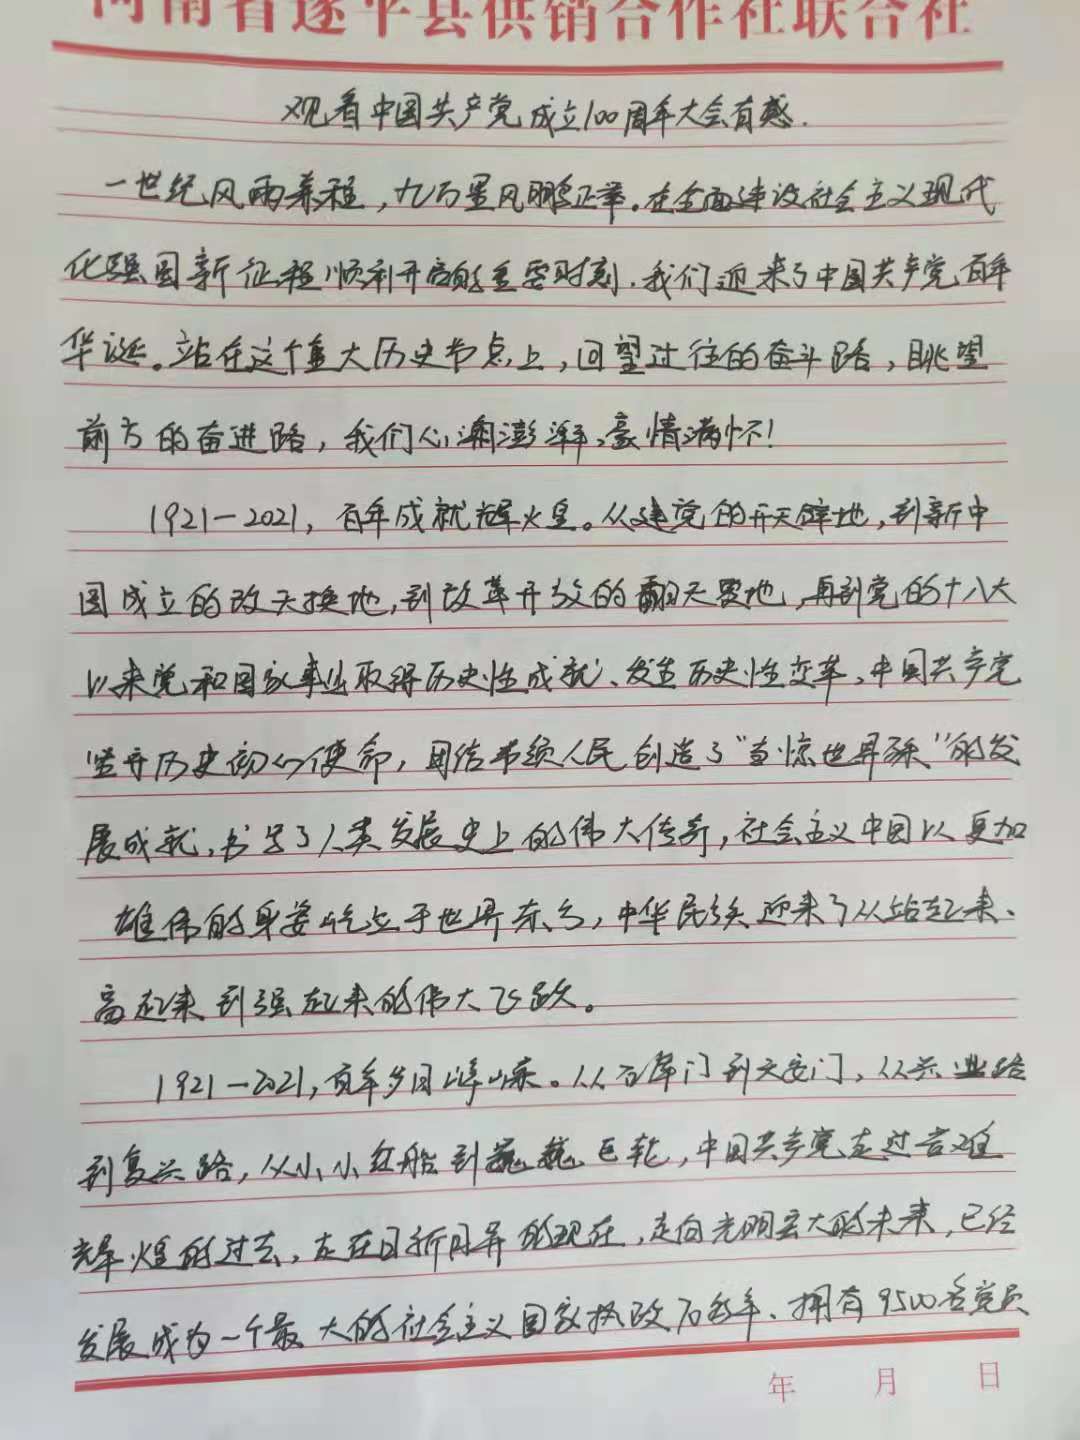 河南省遂平县供销合作社联合社
观看中国共产党成立100周年大会有感.
一世纪风雨兼程，九万里风鹏正举。在全面建设社会主义现代
化强国新征程顺利开启的重要时刻，我们迎来了中国共产党百年
华诞。站在这个重大历史节点上，回望过往的奋斗路，眺望
前方的奋进路，我们心潮澎湃、豪情满怀！
1921—2021，百年成就辉煌。从建党的开天辟地，到新中
国成立的改天换地，到改革开放的翻天覆地，再到党的十八大
以来党和国家事业取得历史性成就、发生历史性变革，中国共产党
坚守历史初心使命，团结带领人民创造了“当惊世界殊”的发
展成就，书写了人类发展史上的伟大传奇，社会主义中国以更加
雄伟的身姿屹立于世界东方，中华民族迎来了从站起来、
富起来到强起来的伟大飞跃。
1921—2021，百年岁月峥嵘。从石库门到天安门，从兴业路
到复兴路，从小小红船到巍巍巨轮，中国共产党走过苦难
辉煌的过去，走在日新月异的现在，走向光明宏大的未来，已经
发展成为一个最大的社会主义国家执政70多年、拥有9500名党员
年 月 日